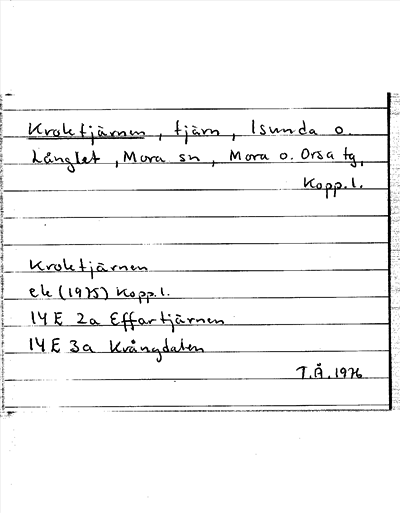 Kroktjärnen, tjärn, Isunda o.
Långlet, Mora sn, Mora o. Orsa tg,
Kopp.l.
Kroktjärnen
ek (1975) Kopp.l.
14 E 2a Effartjärnen
14 E 3a Krångdalen
T.Å. 1976